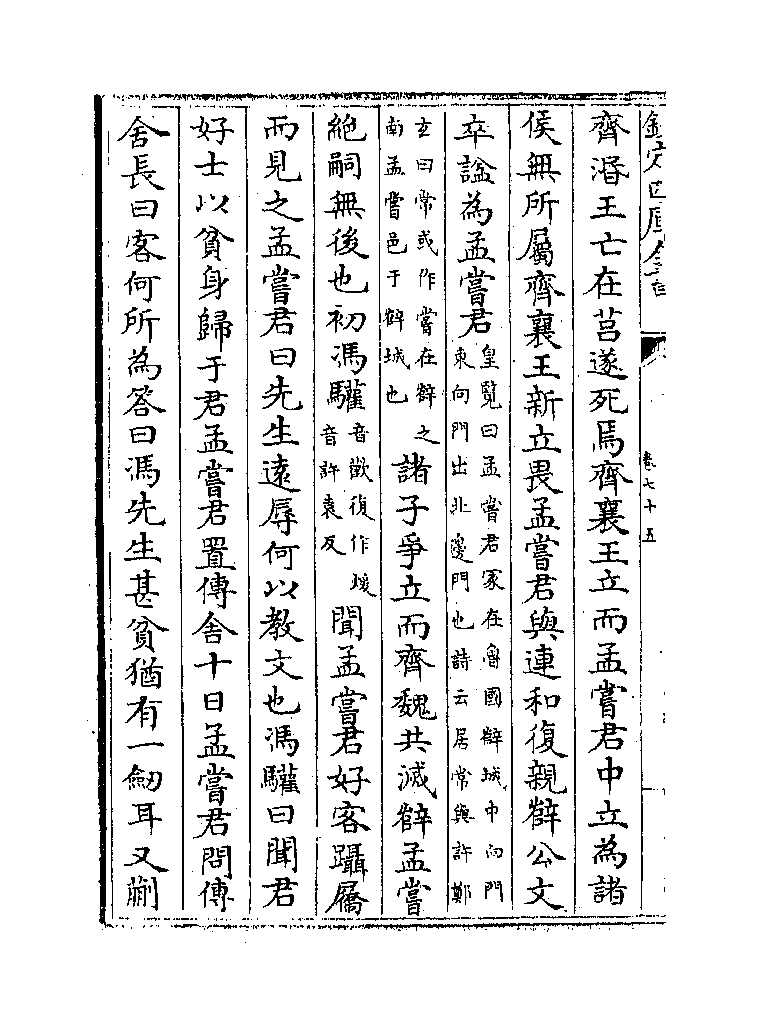 欽定四庫全書
卷七十五
齊湣王亡在莒遂死焉齊襄王立而孟嘗君中立為諸
侯無所屬齊襄王新立畏孟嘗君與連和復親薛公文
卒諡為孟嘗君皇覽曰孟嘗君冢在魯國薛城中向門
東向門出北邊門也詩云居常與許鄭
𤣥曰常或作嘗在薛之
南孟嘗邑于薛城也諸子爭立而齊魏共滅薛孟嘗
絶嗣無後也初馮驩音歡復作煖
音許袁反聞孟嘗君好客躡屩
而見之孟嘗君曰先生逺辱何以教文也馮驩曰聞君
好士以貧身歸于君孟嘗君置傳舍十日孟嘗君問傳
舍長曰客何所為答曰馮先生甚貧猶有一劒耳又蒯